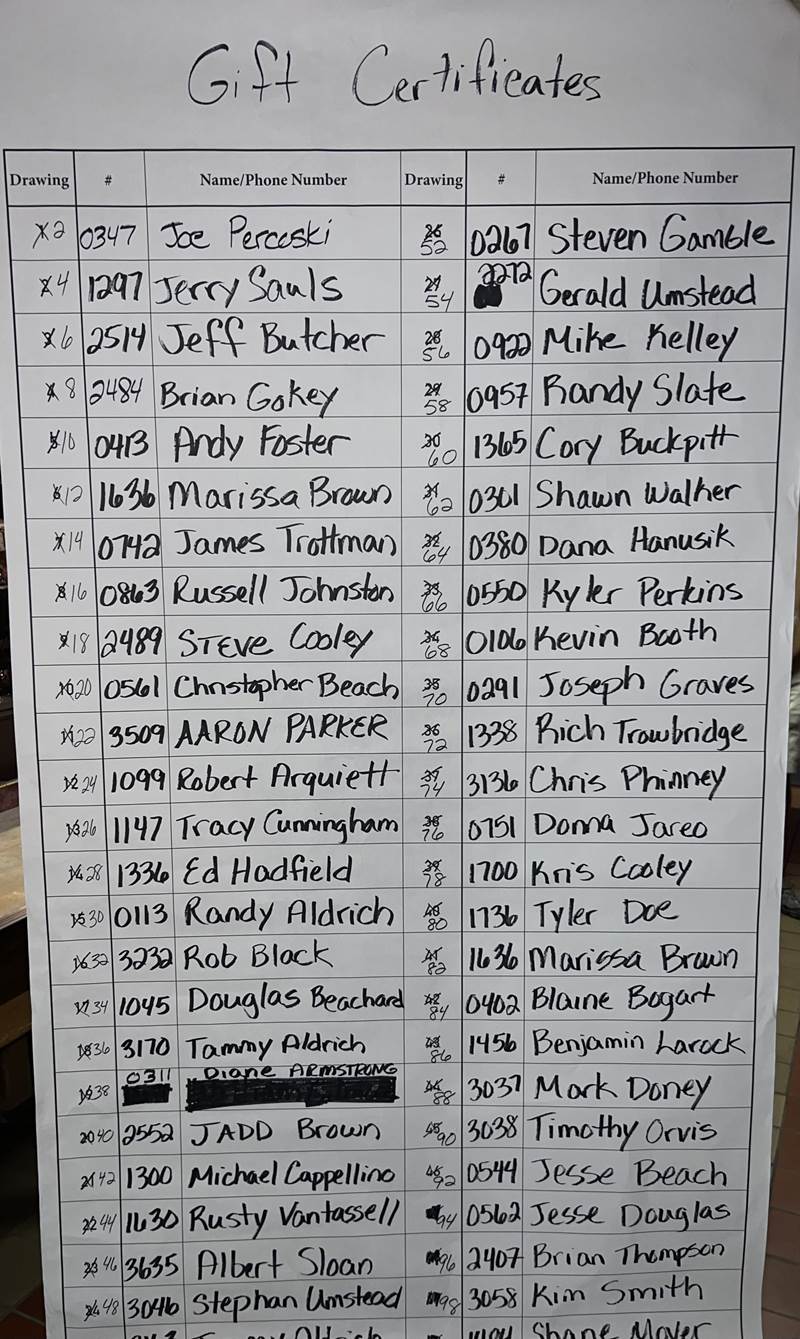 Gift Certificates
Drawing # Name/Phone Number Drawing # Name/Phone Number
2 0347 Joe Percoski 26 52 0267 Steven Gamble
4 1297 Jerry Sauls 27 54 2272 Gerald Umstead
6 2514 Jeff Butcher 28 56 0922 Mike Kelley
8 2484 Brian Gokey 29 58 0957 Randy Slate
10 0413 Andy Foster 30 60 1365 Cory Buckpitt
12 1636 Marissa Brown 31 62 0361 Shawn Walker
14 0742 James Trottman 32 64 0380 Dana Hanusik
16 0863 Russell Johnston 33 66 0550 Kyler Perkins
18 2489 STEVE Cooley 34 68 0106 Kevin Booth
20 0561 Christopher Beach 35 70 0291 Joseph Graves
22 3509 AARON PARKER 36 72 1338 Rich Trowbridge
24 1099 Robert Arquiett 37 74 3136 Chris Phinney
26 1147 Tracy Cunningham 38 76 0751 Donna Jareo
28 1336 Ed Hadfield 39 78 1700 Kris Cooley
30 0113 Randy Aldrich 40 80 1736 Tyler Doe
32 3232 Rob Black 41 82 1636 Marissa Brown
34 1045 Douglas Beachard 42 84 0402 Blaine Bogart
36 3170 Tammy Aldrich 43 86 1456 Benjamin Larock
38 0311 Diane ARMSTRONG 44 88 3037 Mark Doney
40 2552 JADD Brown 45 90 3038 Timothy Orvis
42 1300 Michael Cappellino 46 92 0544 Jesse Beach
44 1630 Rusty Vantassell 94 0562 Jesse Douglas
46 3635 Albert Sloan 96 2407 Brian Thompson
48 3046 Stephan Umstead 98 3058 Kim Smith
Shane Mayer